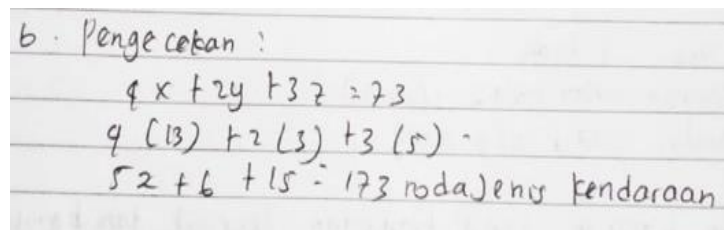 6. Pengecekan :
4x + 2y + 3z = 73
4 (13) + 2 (3) + 3 (5) -
52 + 6 + 15 = 173 roda Jenis kendaraan